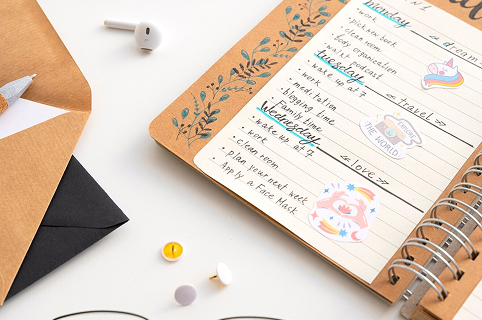 Monday
• work
• pick a book
• clean room
• body organization
• walk + podcast
Tuesday
• wake up at 7
• work
• meditation
• blogging time
• Family time
Wednesday
• wake up at 7
• work
• clean room
• plan your next week
• Apply a Face Mask
<<dream
<<travel>>
EXPLORE
THE WORLD
<<love>>